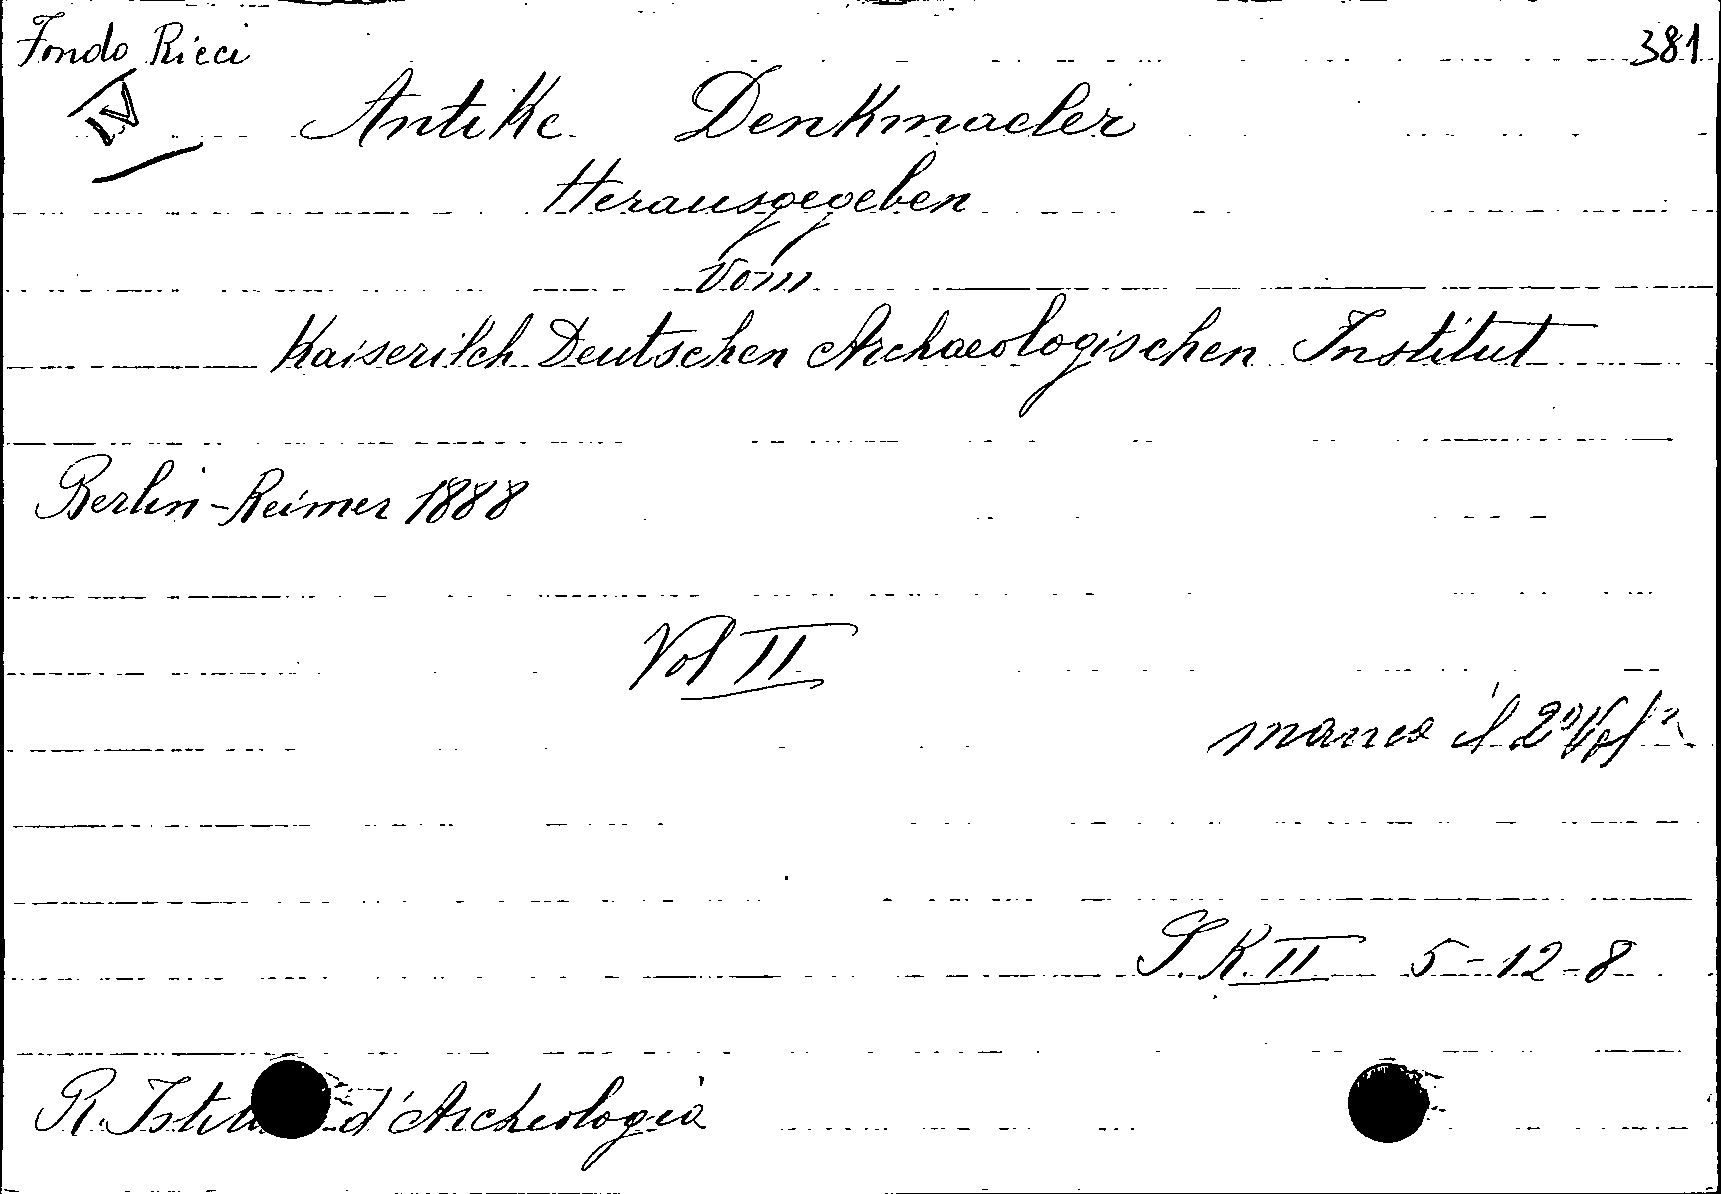 Fondo Ricci 381
IV
Antike Denkmaeler
Herausgegeben
vom
Kaiserilch Deutschen Archaeologischen Institut
Berlin-Reimer 1888
Vol II
manca il 2° Vol
S. R. II 5-12-8
R. d'Archeologia